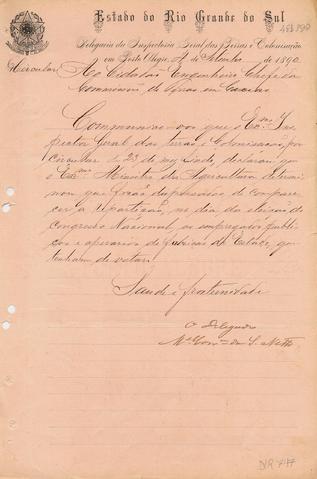 Estado do Rio Grande do Sul
Delegacia da Inspectoria Geral das Terras e Colonisação
em Porto Alegre, de Setembro de 1890.
Circular Ao Cidadão Engenheiro Chefe da
Commissão de Terras em
Communico-vos que o Exmo. Ins-
pector Geral das Terras e Colonisação, por
circular de 23 de mez findo, declarou que
o Exmo. Ministro da Agricultura determi-
nou que fossem dispensados de compare-
cer a repartição, no dia da eleição do
Congresso Nacional, os empregados publi-
cos e operarios de fabricas do Estado, que
tenham de votar.
Saude e fraternidade
O Delegado
Ml. da S. Netto